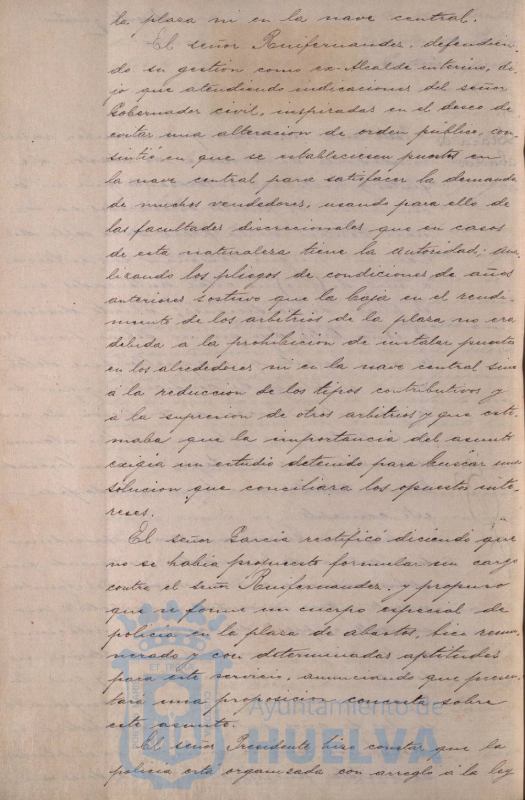 la plaza ni en la nave central.
El señor Ruifernandez, defendien-
do su gestión como ex-Alcalde interino, di-
jo que atendiendo indicaciones del señor
Gobernador civil, inspiradas en el deseo de
evitar una alteracion de orden público, con-
sintió en que se estableciesen puestos en
la nave central para satisfacer la demanda
de muchos vendedores, usando para ello de
las facultades discrecionales que en casos
de esta naturaleza tiene la autoridad; ana-
lizando los pliegos de condiciones de años
anteriores sostuvo que la baja en el rendi-
miento de los arbitrios de la plaza no era
debida á la prohibicion de instalar puestos
en los alrededores ni en la nave central sino
á la reduccion de los tipos contributivos y
á la supresion de otros arbitrios y que esti-
maba que la importancia del asunto
exigia un estudio detenido para buscar una
solucion que conciliara los opuestos inte-
reses.
El señor Garcia rectificó diciendo que
no se habia propuesto formular un cargo
contra el señor Ruifernandez, y propuso
que se forme un cuerpo especial de
policia en la plaza de abastos, bien remu-
nerado y con determinadas aptitudes
para este servicio, anunciando que presen-
tará una proposicion concreta sobre
este asunto.
El señor Presidente hizo constar que la
policia está organizada con arreglo á la ley
Ayuntamiento de
HUELVA